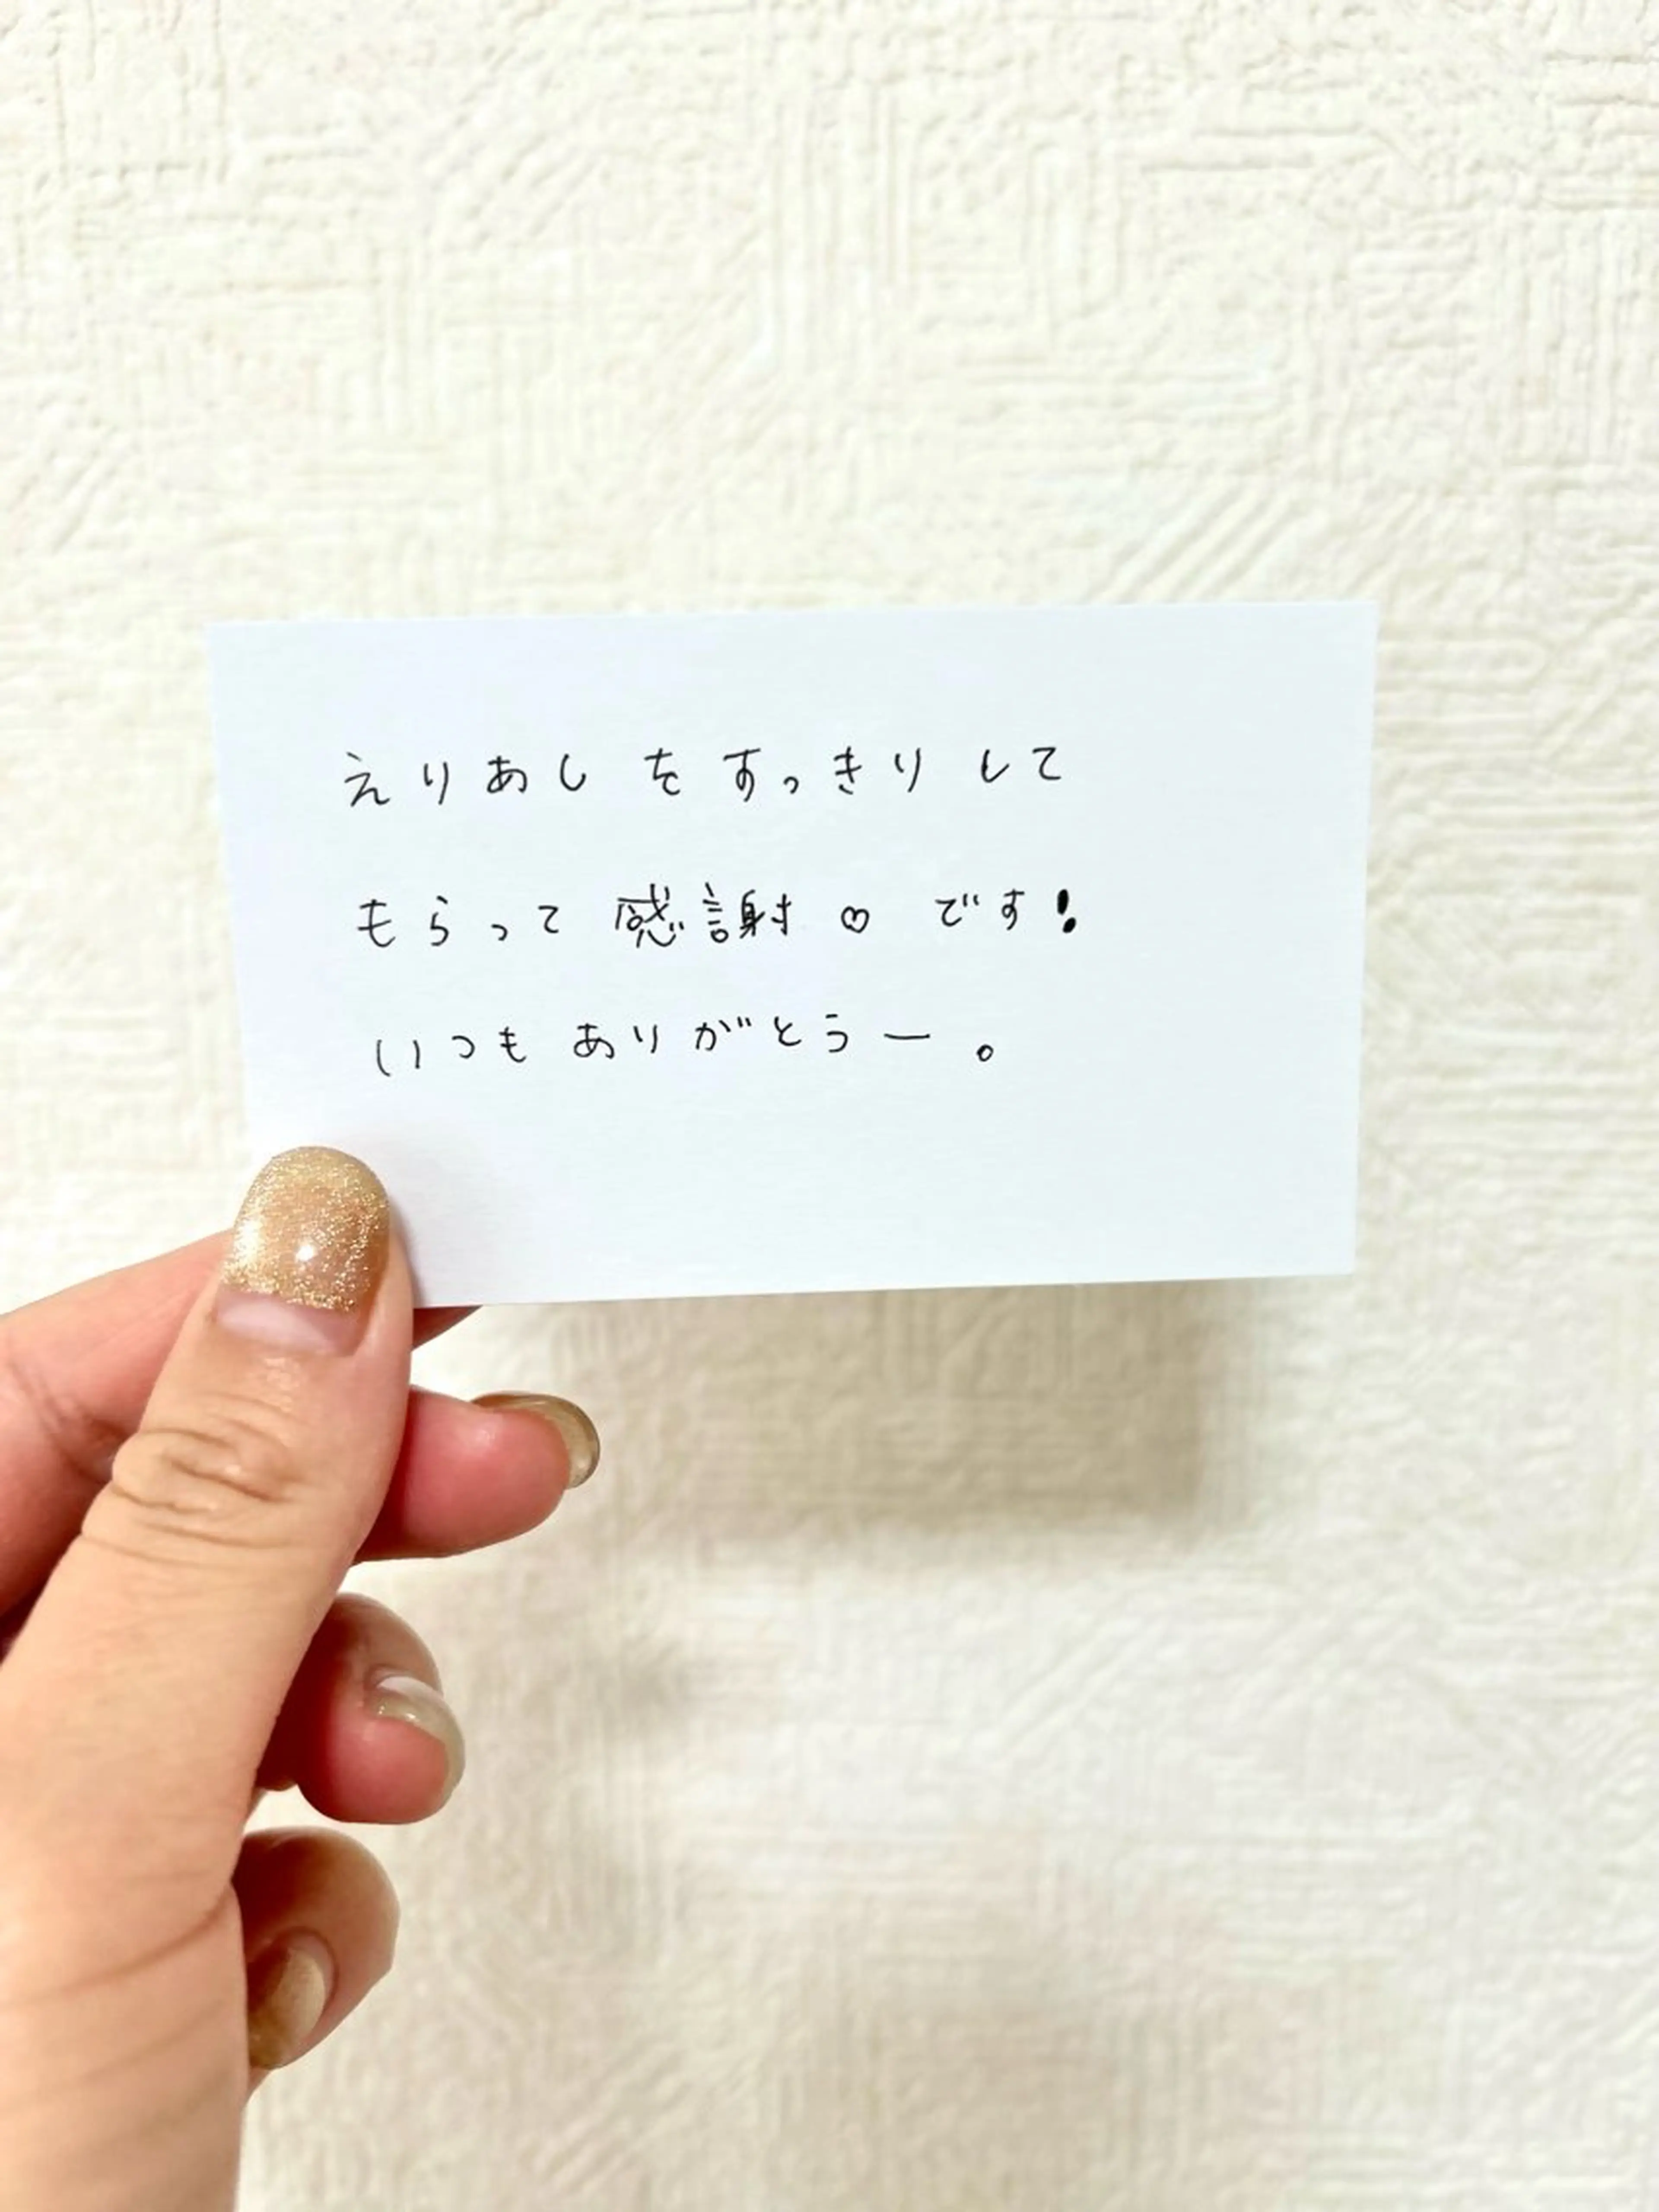 えりあしをすっきりして
もらって感謝♡です！
いつもありがとうー。